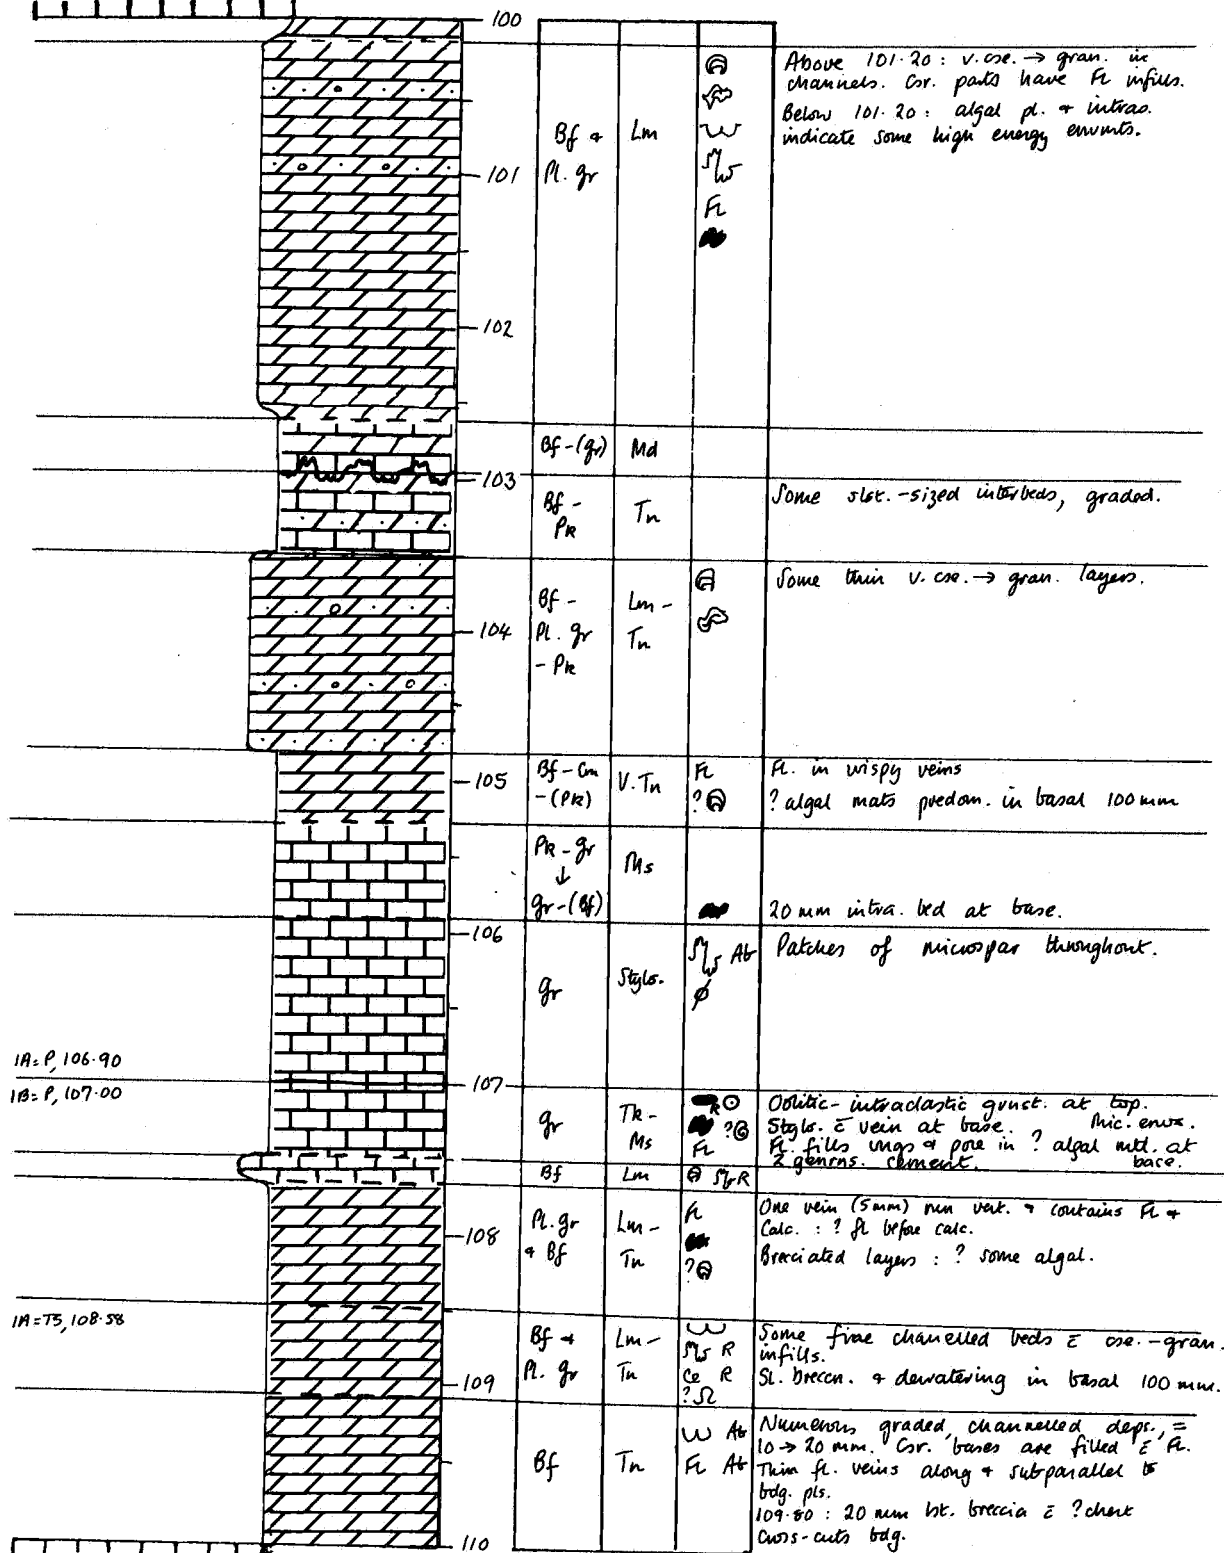 100
Bf &
Pl. gr
Lm
Above 101.20 : v. cse. → gran. in
channels. Csr. parts have FL infills.
Below 101.20 : algal pl. & intras.
indicate some high energy envmts.
FL
101
102
Bf - (gr)
Md
103
Bf -
Pk
Tn
Some slst. -sized interbeds, graded.
104
Bf -
Pl. gr
- Pk
Lm -
Tn
Some thin v. cse. → gran. layers.
105
Bf - Cm
- (Pk)
V. Tn
FL
?
FL. in wispy veins
? algal mats predom. in basal 100 mm
Pk - gr
↓
gr - (Bf)
Ms
20 mm intra. bed at base.
106
gr
Stylo.
Ab
ø
Patches of microspar throughout.
1A = P, 106.90
107
1B = P, 107.00
gr
Tk -
Ms
R
?
FL
Oolitic - intraclastic grnst. at top.
Stylo. c̄ vein at base. Mic. envs.
FL. fills vugs & pore in ? algal mtl. at
2 genrns. cement. base.
Bf
Lm
R
108
Pl. gr
& Bf
Lm -
Tn
FL
?
One vein (5mm) run vert. & contains FL &
Calc. : ? fl before calc.
Brecciated layers : ? some algal.
1A = T5, 108.58
Bf &
Pl. gr
Lm -
Tn
R
Ce R
? Ω
Some fine chanelled beds c̄ cse. - gran.
infills.
Sl. breccn. & dewatering in basal 100 mm.
109
Bf
Tn
Ab
FL Ab
Numerous graded, channelled deps., =
10 → 20 mm. Csr. bases are filled c̄ FL.
Thin fl. veins along & subparallel to
bdg. pls.
109.80 : 20 mm bt. breccia c̄ ? chert
Cross-cuts bdg.
110